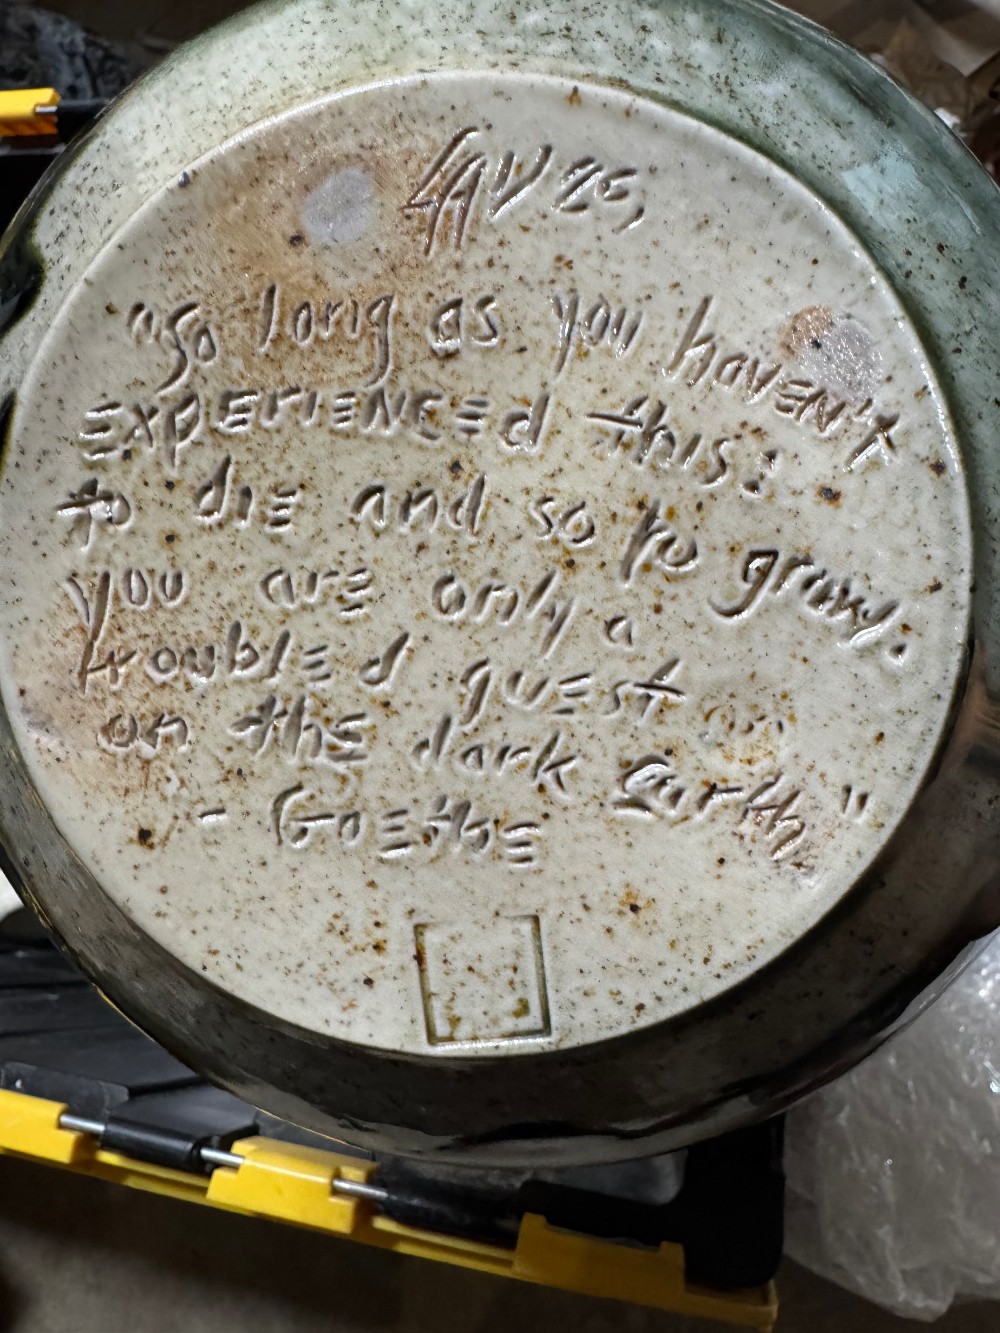 25,
"So long as you haven't
experienced this:
to die and so to grow,
you are only a
troubled guest
on the dark earth."
- Goethe